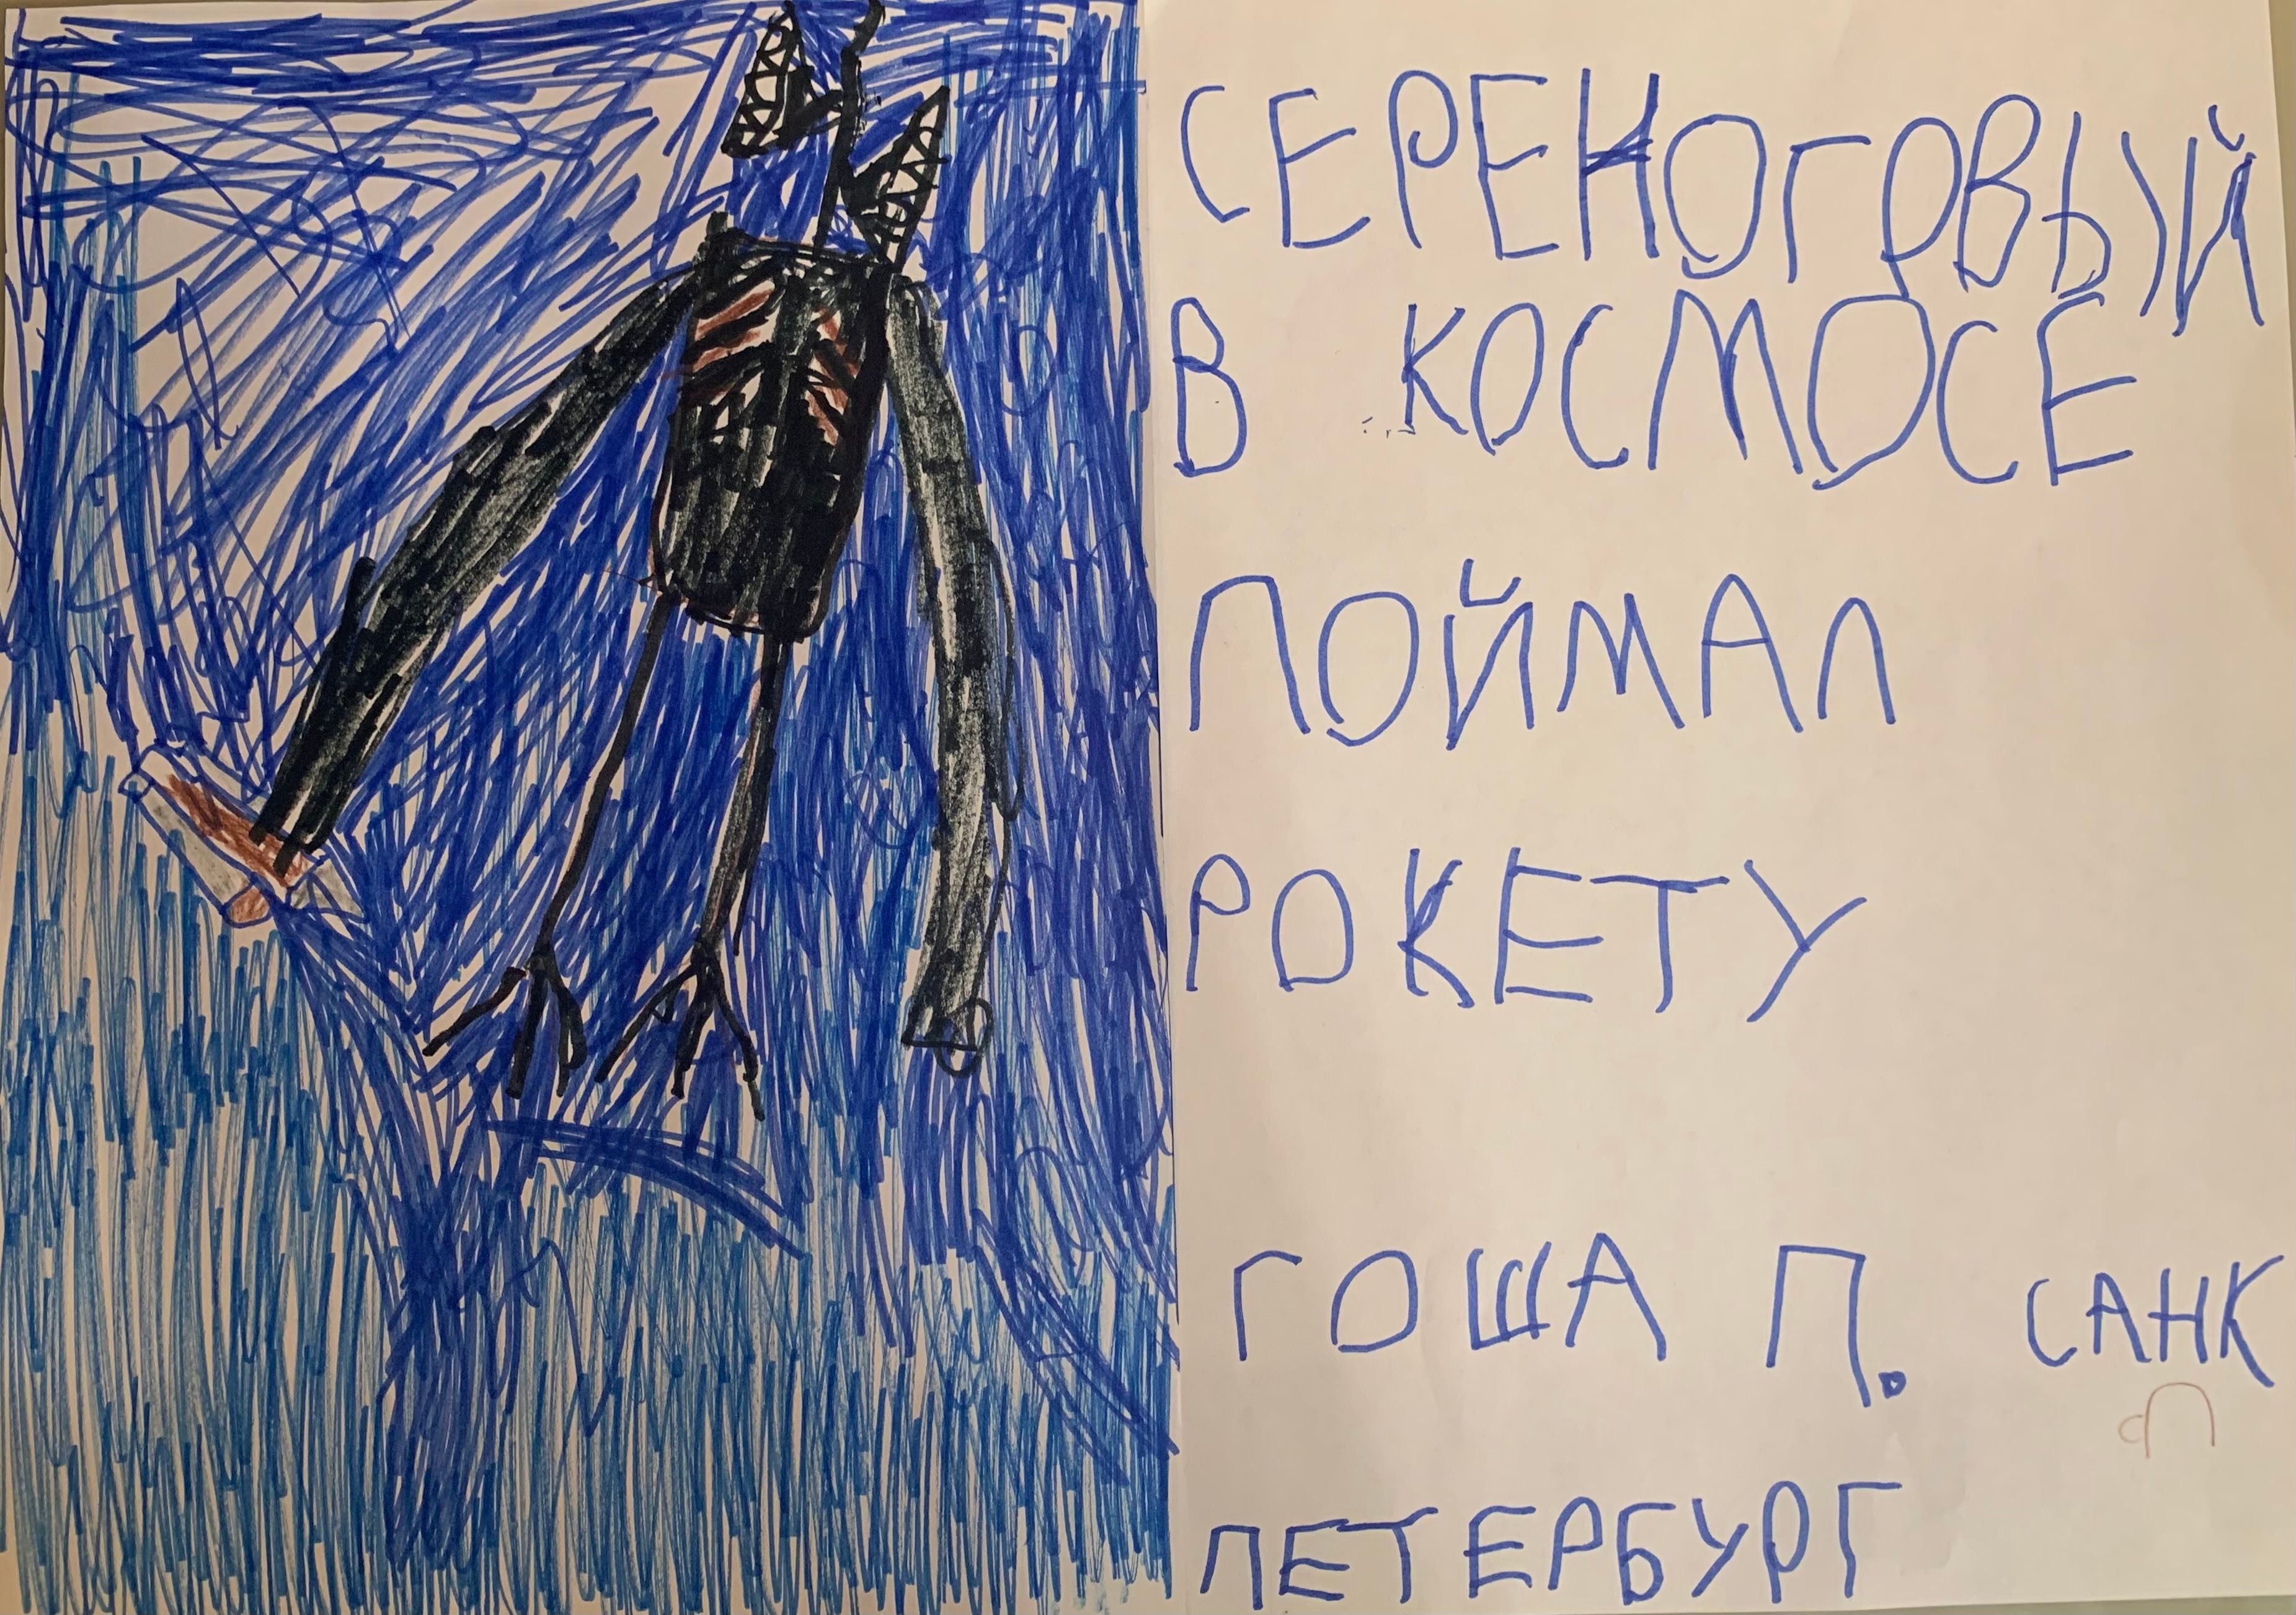 СЕРЕНОГОВЫЙ
В КОСМОСЕ
ПОЙМАЛ
РОКЕТУ
ГОША П. САНК
ПЕТЕРБУРГ